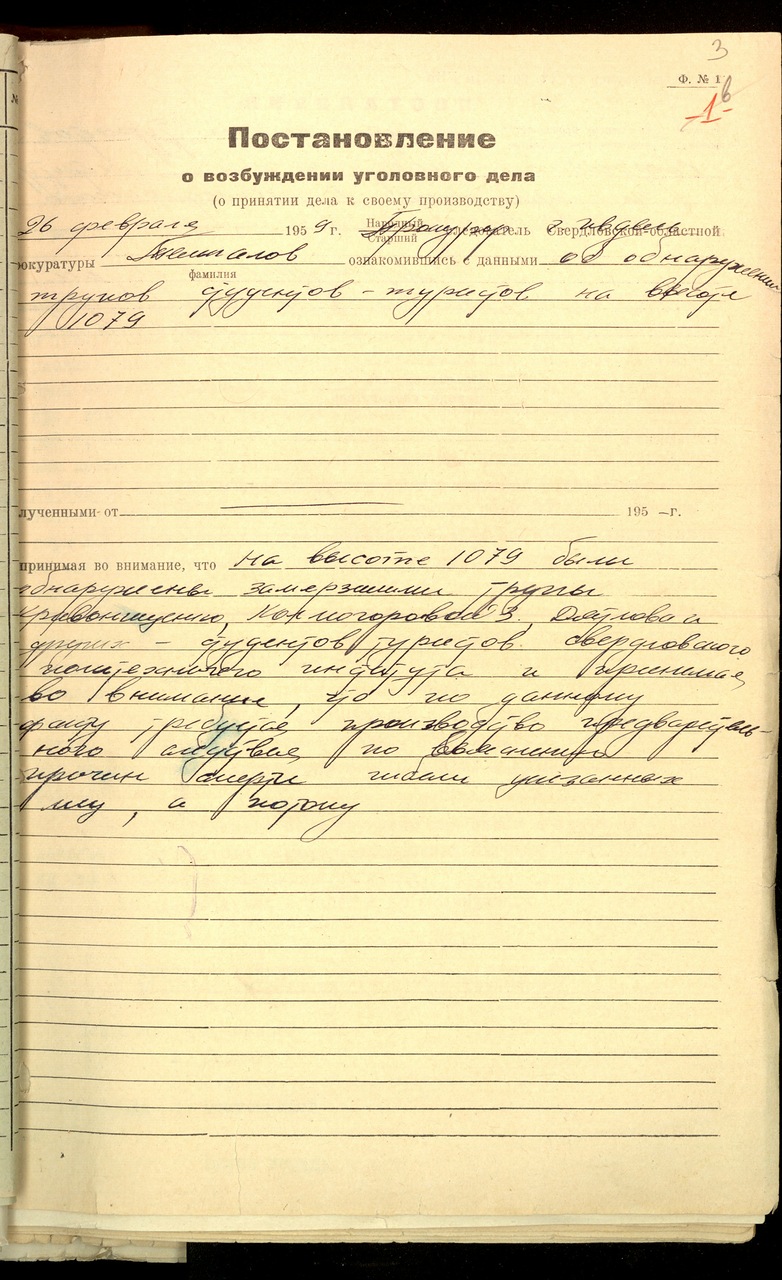 3
Ф. № 1
-1-
в
Постановление
о возбуждении уголовного дела
(о принятии дела к своему производству)
26 февраля 1959 г. Народный Старший следователь Прокурор г. Ивдель Свердловской областной
рокуратуры Темпалов ознакомившись с данными об обнаружении
фамилия
трупов студентов-туристов на высоте
1079
лученными от — 195 – г.
принимая во внимание, что на высоте 1079 были
обнаружены замерзшими трупы
Кривонищенко, Колмогоровой З., Дятлова и
других - студентов туристов Свердловского
политехничого института и принимая
во внимание, что по данному
факту требуется производство предваритель-
ного следствия по выяснению
причин смерти гибели указанных
лиц, а потому